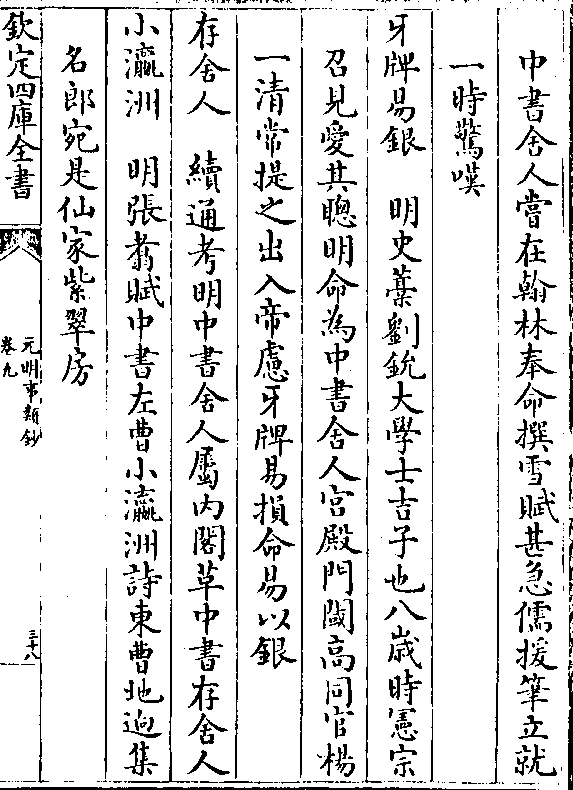 中書舍人嘗在翰林奉命撰雪賦甚急儒援筆立就
一時驚嘆
牙牌易銀　明史藁劉鈗大學士吉子也八歲時憲宗
召見愛其聰明命為中書舍人宮殿門閾高同官楊
一清常提之出入帝慮牙牌易損命易以銀
存舍人　續通考明中書舍人屬內閣草中書存舍人
小瀛洲　明張翥賦中書左曹小瀛洲詩東曹地逈集
名郎宛是仙家紫翠房
欽定四庫全書
元明事類鈔
卷九
三十八